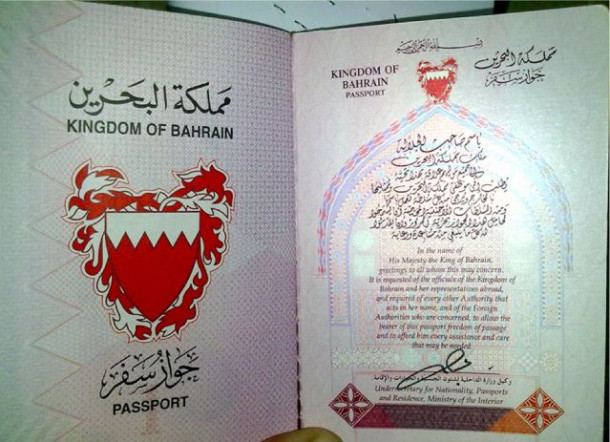 مملكة البحرين
KINGDOM OF BAHRAIN
جواز سفر
PASSPORT
بسم الله الرحمن الرحيم
KINGDOM OF
BAHRAIN
PASSPORT
مملكة البحرين
جواز سفر
باسم صاحب الجلالة
ملك مملكة البحرين
In the name of
His Majesty the King of Bahrain,
greetings to all whom this may concern.
It is requested of the officials of the Kingdom of
Bahrain and her representatives abroad,
and required of every other Authority that
acts in her name, and of the Foreign
Authorities who are concerned, to allow the
bearer of this passport freedom of passage
and to afford him every assistance and care
that may be needed.
وكيل وزارة الداخلية لشئون الجنسية والجوازات والإقامة
Undersecretary for Nationality, Passports
and Residence, Ministry of the Interior